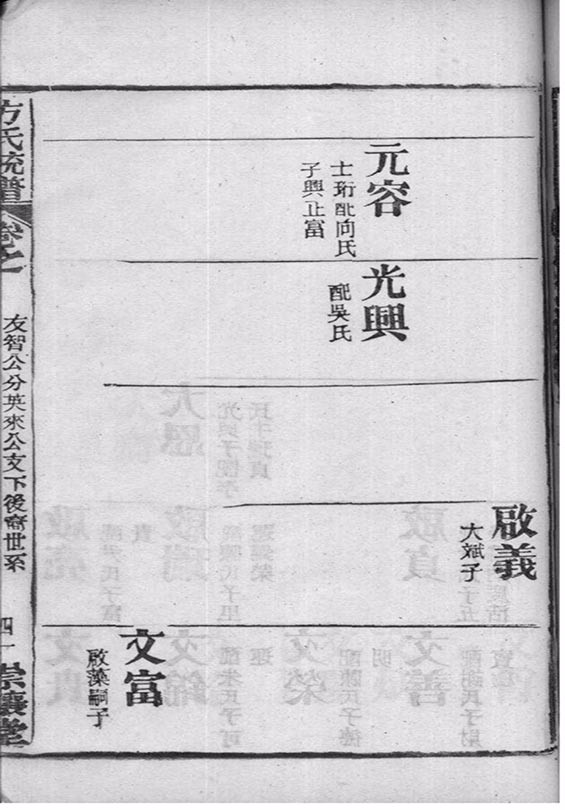 元容
士珩配向氏
子興止富
光興
配吳氏
啟義
大斌子
文富
啟藻嗣子
方氏統譜
卷之
友智公分英來公支下後裔世系
四一
崇讓堂